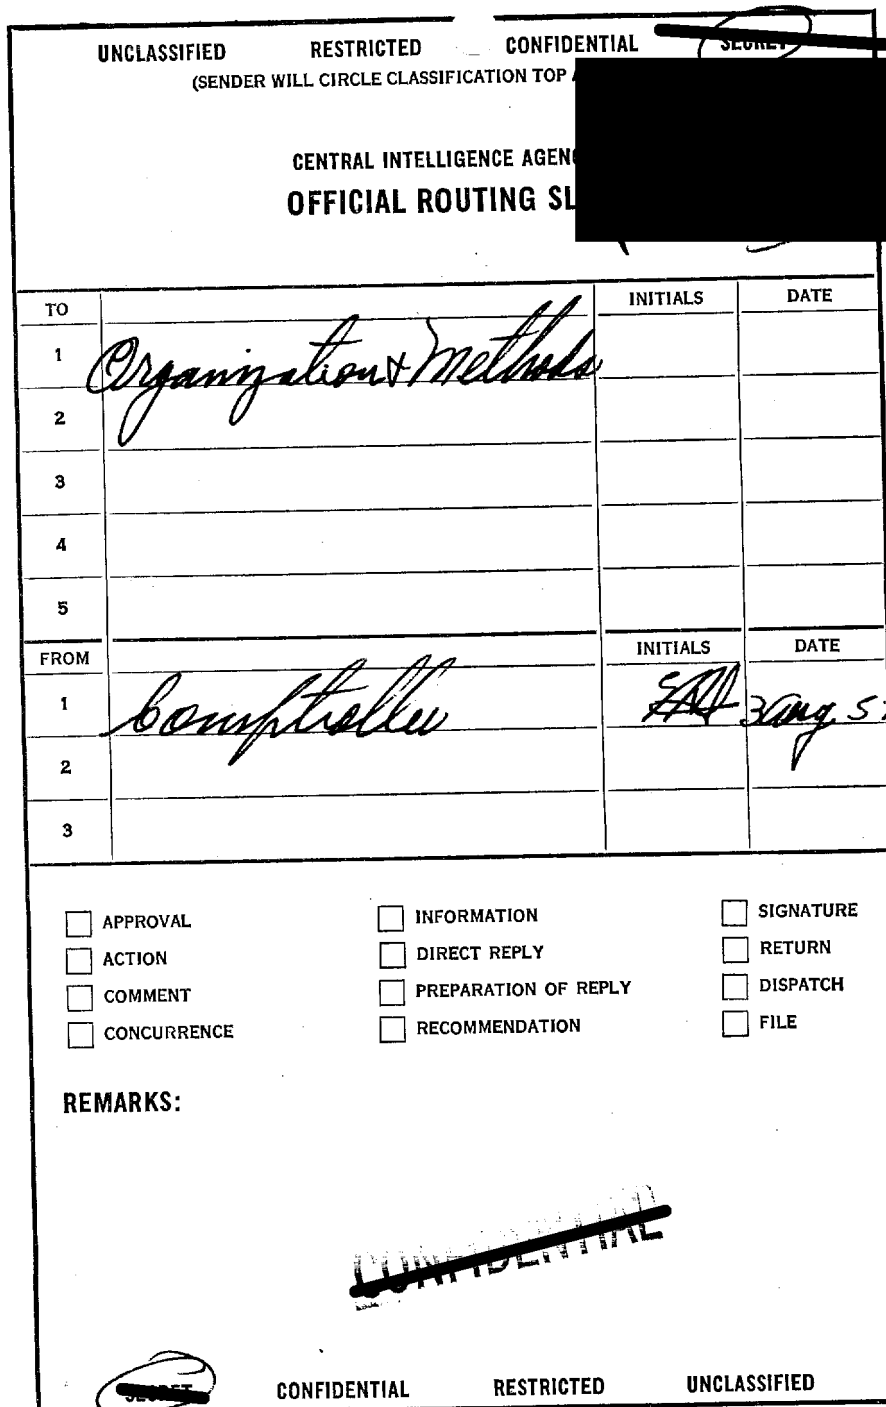 UNCLASSIFIED RESTRICTED CONFIDENTIAL SECRET
(SENDER WILL CIRCLE CLASSIFICATION TOP
CENTRAL INTELLIGENCE AGENC
OFFICIAL ROUTING SL
TO INITIALS DATE
1 Organization & Methods
2
3
4
5
FROM INITIALS DATE
1 Comptroller 3 Aug 5
2
3
APPROVAL INFORMATION SIGNATURE
ACTION DIRECT REPLY RETURN
COMMENT PREPARATION OF REPLY DISPATCH
CONCURRENCE RECOMMENDATION FILE
REMARKS:
CONFIDENTIAL
SECRET CONFIDENTIAL RESTRICTED UNCLASSIFIED